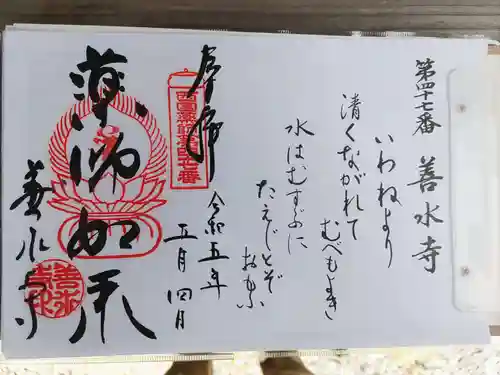 第四十七番 善水寺
いわねより
清くながれて
むべもよき
水はむすぶに
たえじとぞ
おもふ
奉拝
令和五年
五月四日
薬師如来
善水寺